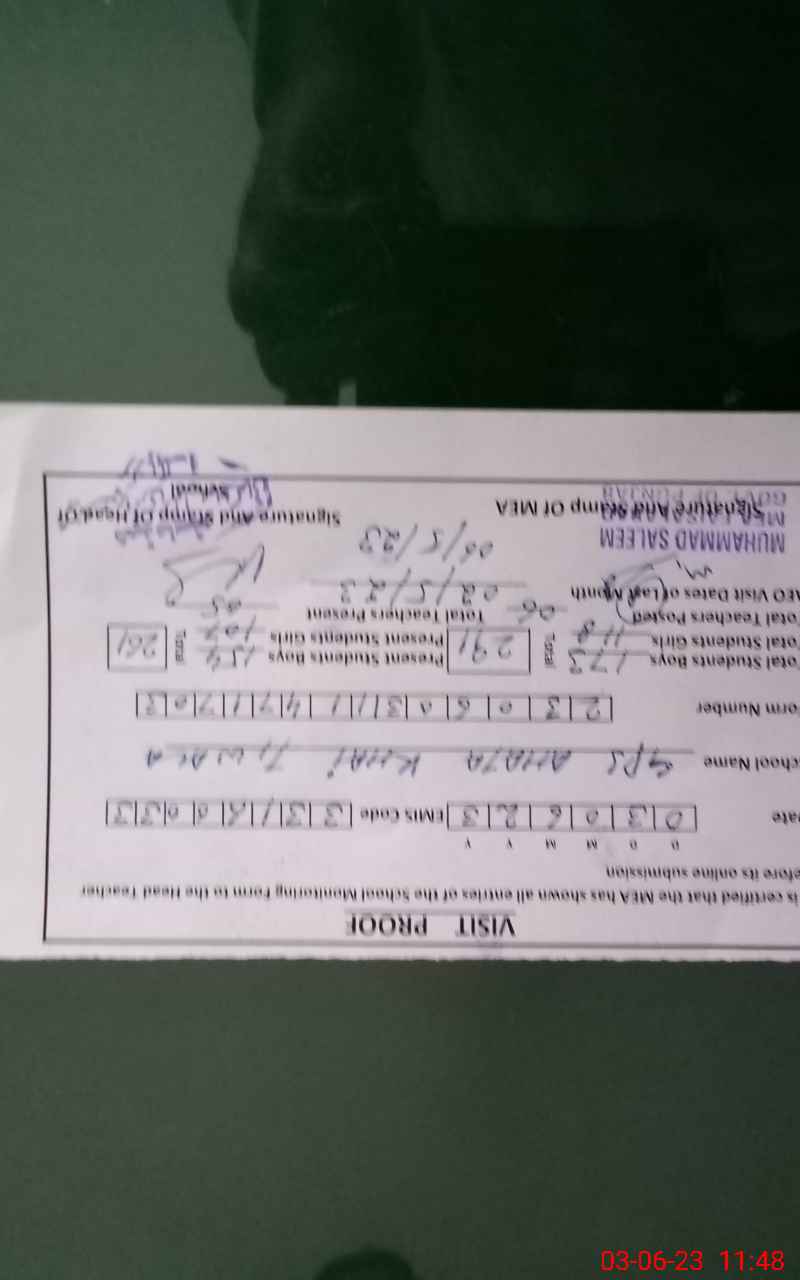 VISIT PROOF
is certified that the MEA has shown all entries of the School Monitoring Form to the Head Teacher
efore its online submission
D D M M Y Y
ate 0 3 0 6 2 3 EMIS Code 3 3 1
chool Name GPS AHATA KHAI
orm Number 2 3 0 6 0 3 1 1 4 7 1 7 0 3
Total Students Boys 173 Total 291 Present Students Boys 154 Total 261
Total Students Girls 118 Present Students Girls 107
Total Teachers Posted 06 Total Teachers Present 05
AEO Visit Dates of Last Month 02/5/23
/5/23
MUHAMMAD SALEEM
Signature And Stamp Of MEA Signature And Stamp Of Head Of
School
GOVT OF PUNJAB
03-06-23 11:48